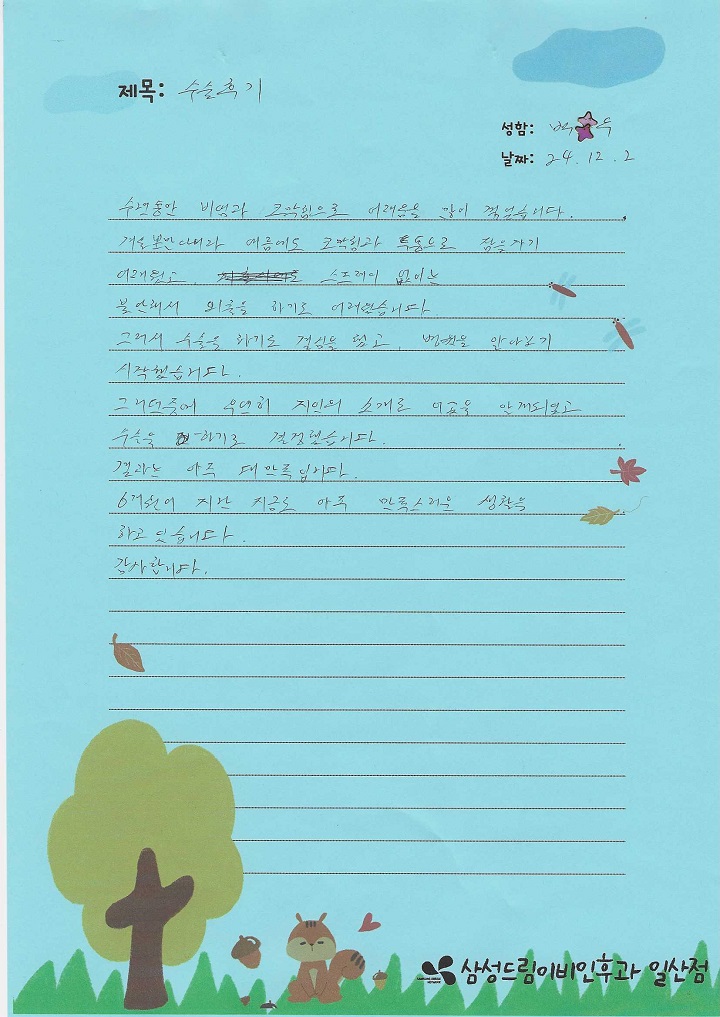 제목: 수술후기
성함: 백 우
날짜: 24. 12. 2
수년동안 비염과 코막힘으로 어려움을 많이 겪었습니다.
겨울뿐만아니라 여름에도 코막힘과 두통으로 잠을자기
어려웠고, 스프레이 없이는
불안해서 외출을 하기도 어려웠습니다.
그래서 수술을 하기로 결심을 했고, 병원을 알아보기
시작했습니다.
그러던중에 우연히 지인의 소개로 이곳을 알게되었고
수술을 하기로 결정했습니다.
결과는 아주 대만족입니다.
6개월이 지난 지금도 아주 만족스러운 생활을
하고 있습니다.
감사합니다.
삼성드림이비인후과 일산점